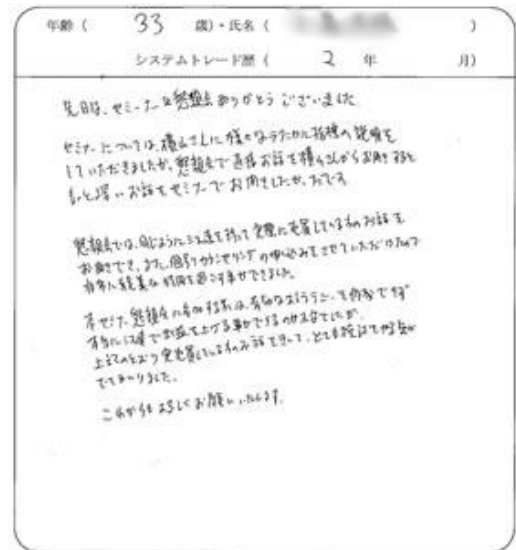 年齢( 33 歳)・氏名( )
システムトレード歴( 2 年 月)
先日は、セミナー&懇親会ありがとうございました
セミナーについては、横山さんに様々な 指標の説明を
していただきましたが、懇親会で直接お話を横山さんからお聞きすると
もっと深いお話をセミナーでお聞きしたかったです
懇親会では、同じように を持って実際に売買している方のお話を
お聞きでき、また、個別カウンセリングの申し込みをさせていただけたので
非常に有意義な時間を過ごす事ができました。
本セミナー、懇親会に参加する前は、
本当に で利益を上げる事ができるのか でしたが
上記のとおり実売買している方のお話をきいて、とても やる気が
でてまいりました。
これからもよろしくお願いいたします。